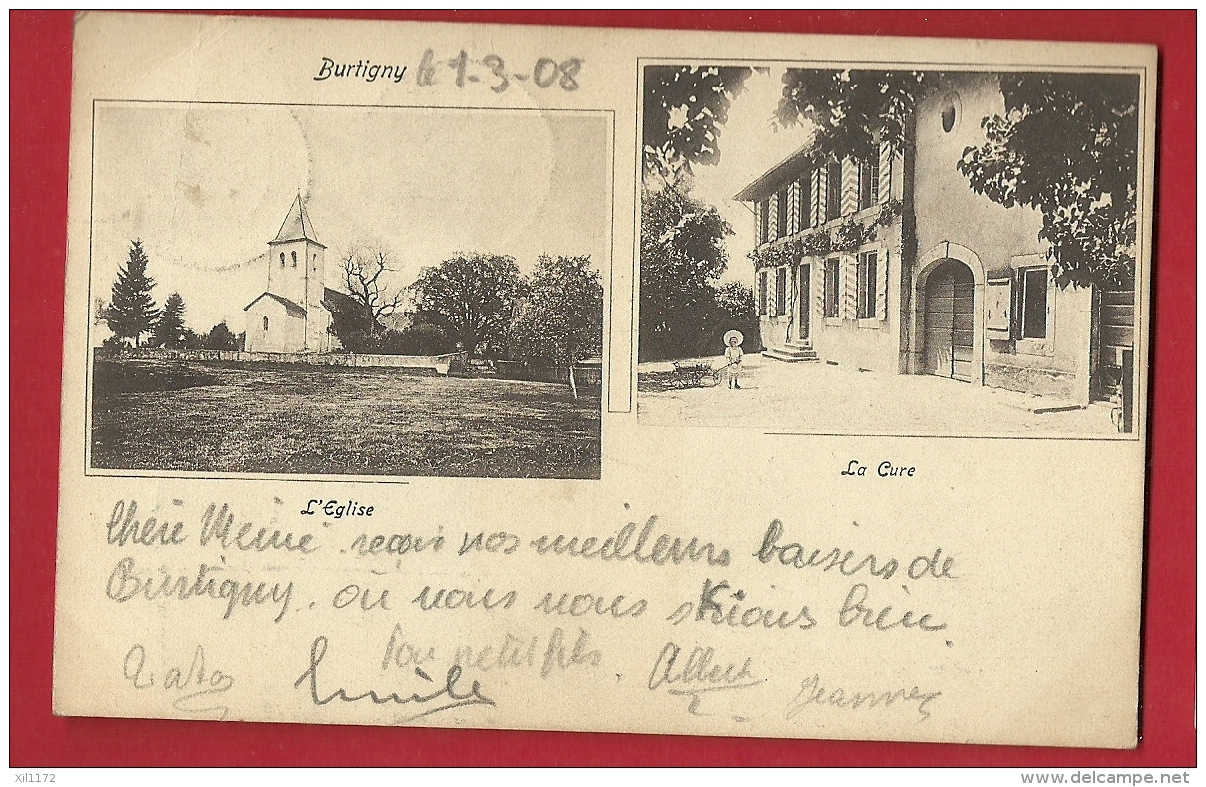 Burtigny le 1-3-08
L'Eglise
La Cure
Chère Mémé reçois nos meilleurs baisers de
Burtigny. où nous nous skions bien.
Ton petit fils
Emile Albert
xil1172
www.delcampe.net